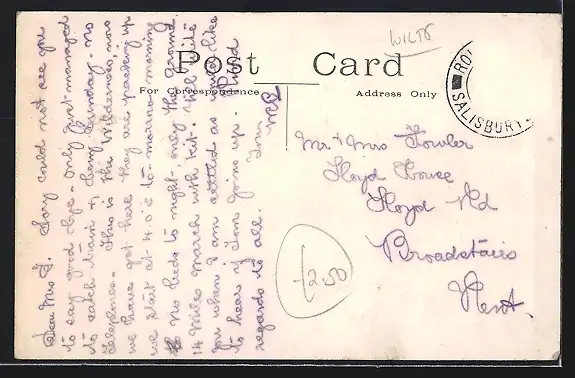 WILTS
Post Card
For Correspondence
Address Only
SALISBURY
Mr & Mrs Fowler
Lloyd House
Lloyd Rd
Broadstairs
Kent.
£2.50
Dear Mrs F. Sorry could not see you
to say good bye - only just managed
to catch train &, being Sunday, no
telegrams. This is the Wilderness, now
we have got here they are packing up
we start at 4.0 c to-morrow morning
No beds to night - only the ground.
14 miles march with kit. Will write
you when I am settled as would like
to hear if Dem joins up. Kind
regards to all. Yours